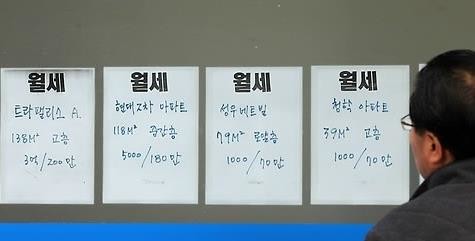 월세
트라팰리스 A.
138M² 고층
3억/200만
월세
현대 2차 아파트
118M² 중간층
5000/180만
월세
성우네트빌
79M² 로얄층
1000/70만
월세
청학 아파트
39M² 고층
1000/70만